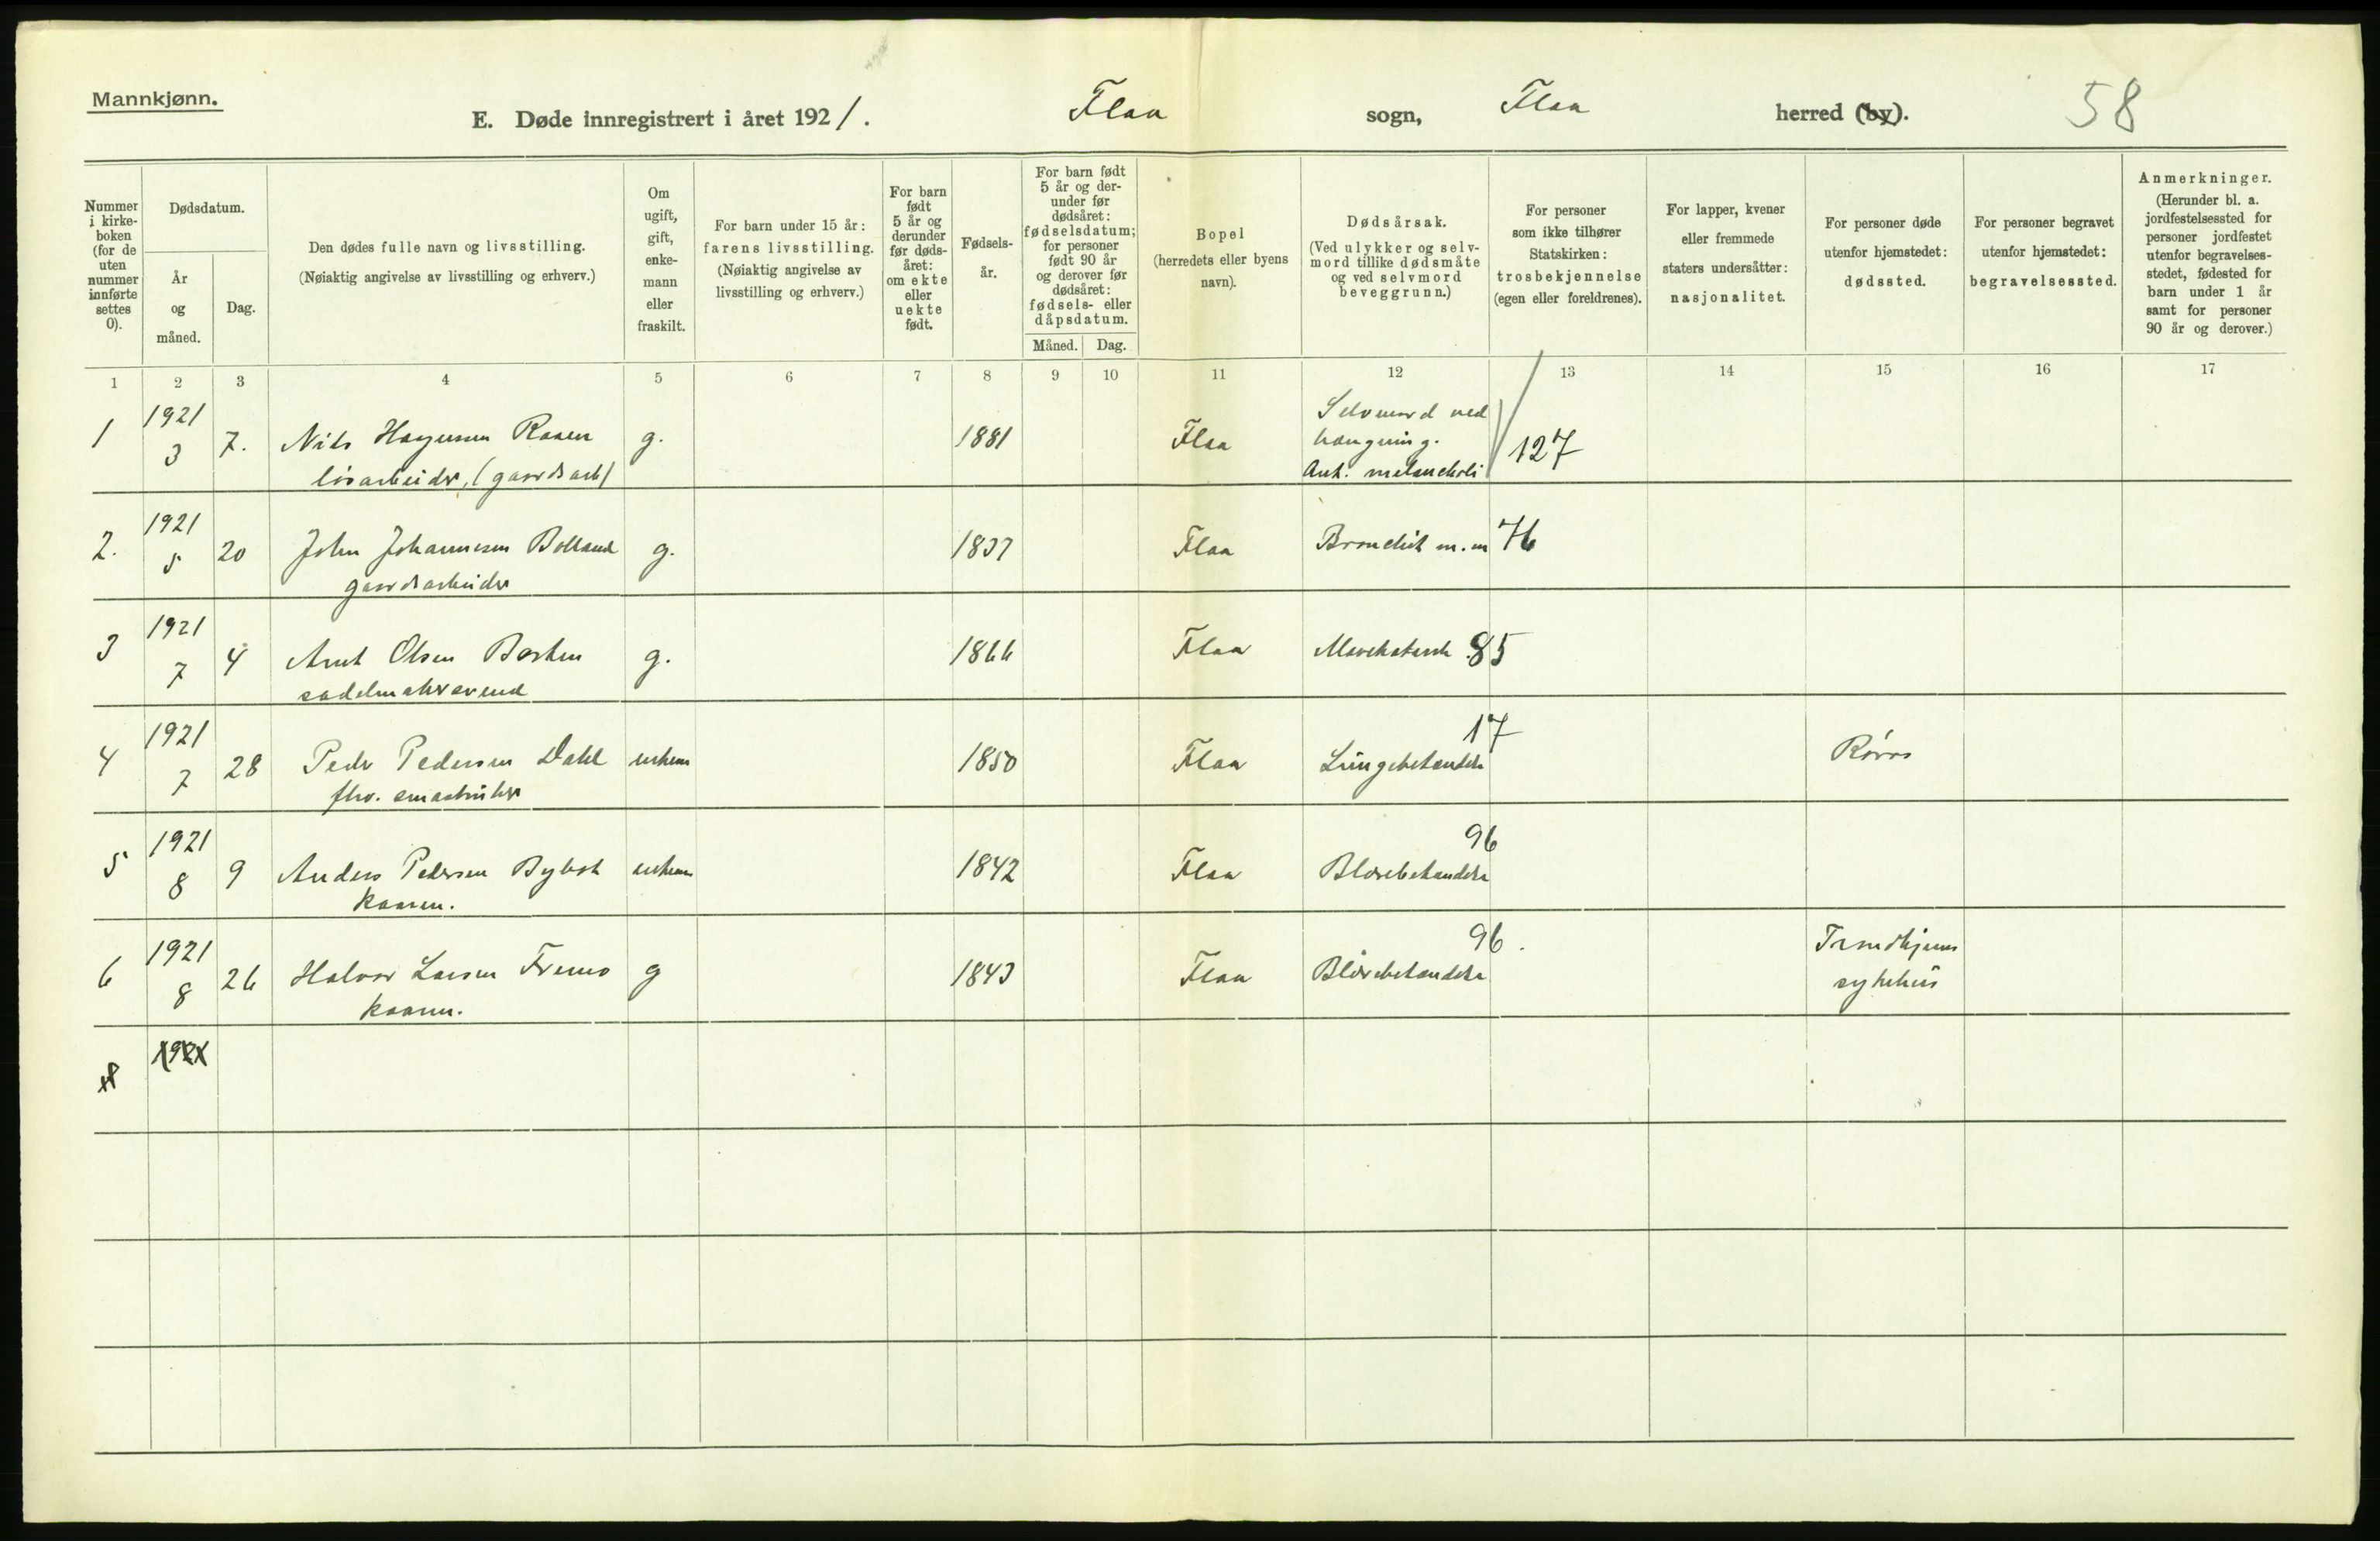 Mannkjønn.
E. Døde innregistrert i året 1921. Flaa sogn, Flaa herred (by). 58
Nummer i kirke- boken (for de uten nummer innførte settes 0).
Dødsdatum.
År og måned.
Dag.
Den dødes fulle navn og livsstilling.
(Nøiaktig angivelse av livsstilling og erhverv.)
Om ugift, gift, enke- mann eller fraskilt.
For barn under 15 år:
farens livsstilling.
(Nøiaktig angivelse av
livsstilling og erhverv.)
For barn født 5 år og derunder før døds- året: om ekte eller uekte født.
Fødsels- år.
For barn født 5 år og der- under før dødsåret: fødselsdatum; for personer født 90 år og derover før dødsåret: fødsels- eller dåpsdatum.
Måned. Dag.
Bopel
(herredets eller byens
navn).
Dødsårsak.
(Ved ulykker og selv-
mord tillike dødsmåte
og ved selvmord
beveggrunn.)
For personer
som ikke tilhører
Statskirken:
trosbekjennelse
(egen eller foreldrenes).
For lapper, kvener
eller fremmede
staters undersåtter:
nasjonalitet.
For personer døde
utenfor hjemstedet:
dødssted.
For personer begravet
utenfor hjemstedet:
begravelsessted.
Anmerkninger.
(Herunder bl. a.
jordfestelsessted for
personer jordfestet
utenfor begravelses-
stedet, fødested for
barn under 1 år
samt for personer
90 år og derover.)
1 2 3 4 5 6 7 8 9 10 11 12 13 14 15 16 17
1 1921 3 7. Nils Haagensen Raaen g. 1881 Flaa Selvmord ved
løsarbeider, (gaardsarb) hængning.
Ant. melancholi 127
2. 1921 5 20 John Johannesen g. 1837 Flaa Bronchit m.m 76
gaardsarbeider
3 1921 7 4 Arnt Olsen g. 1866 Flaa Mavekatarrh 85
sadelmakersvend
4 1921 7 28 Peder Pedersen Dahl enkem 1850 Flaa Lungebetændelse 17 Røros
fhv. smaabruker
5 1921 8 9 Anders Pedersen enkem 1842 Flaa Blærebetændelse 96
kaarm.
6 1921 8 26 Halvor Larsen Fremo g 1843 Flaa Blærebetændelse 96. Trondhjems
kaarm. sykehus
1921